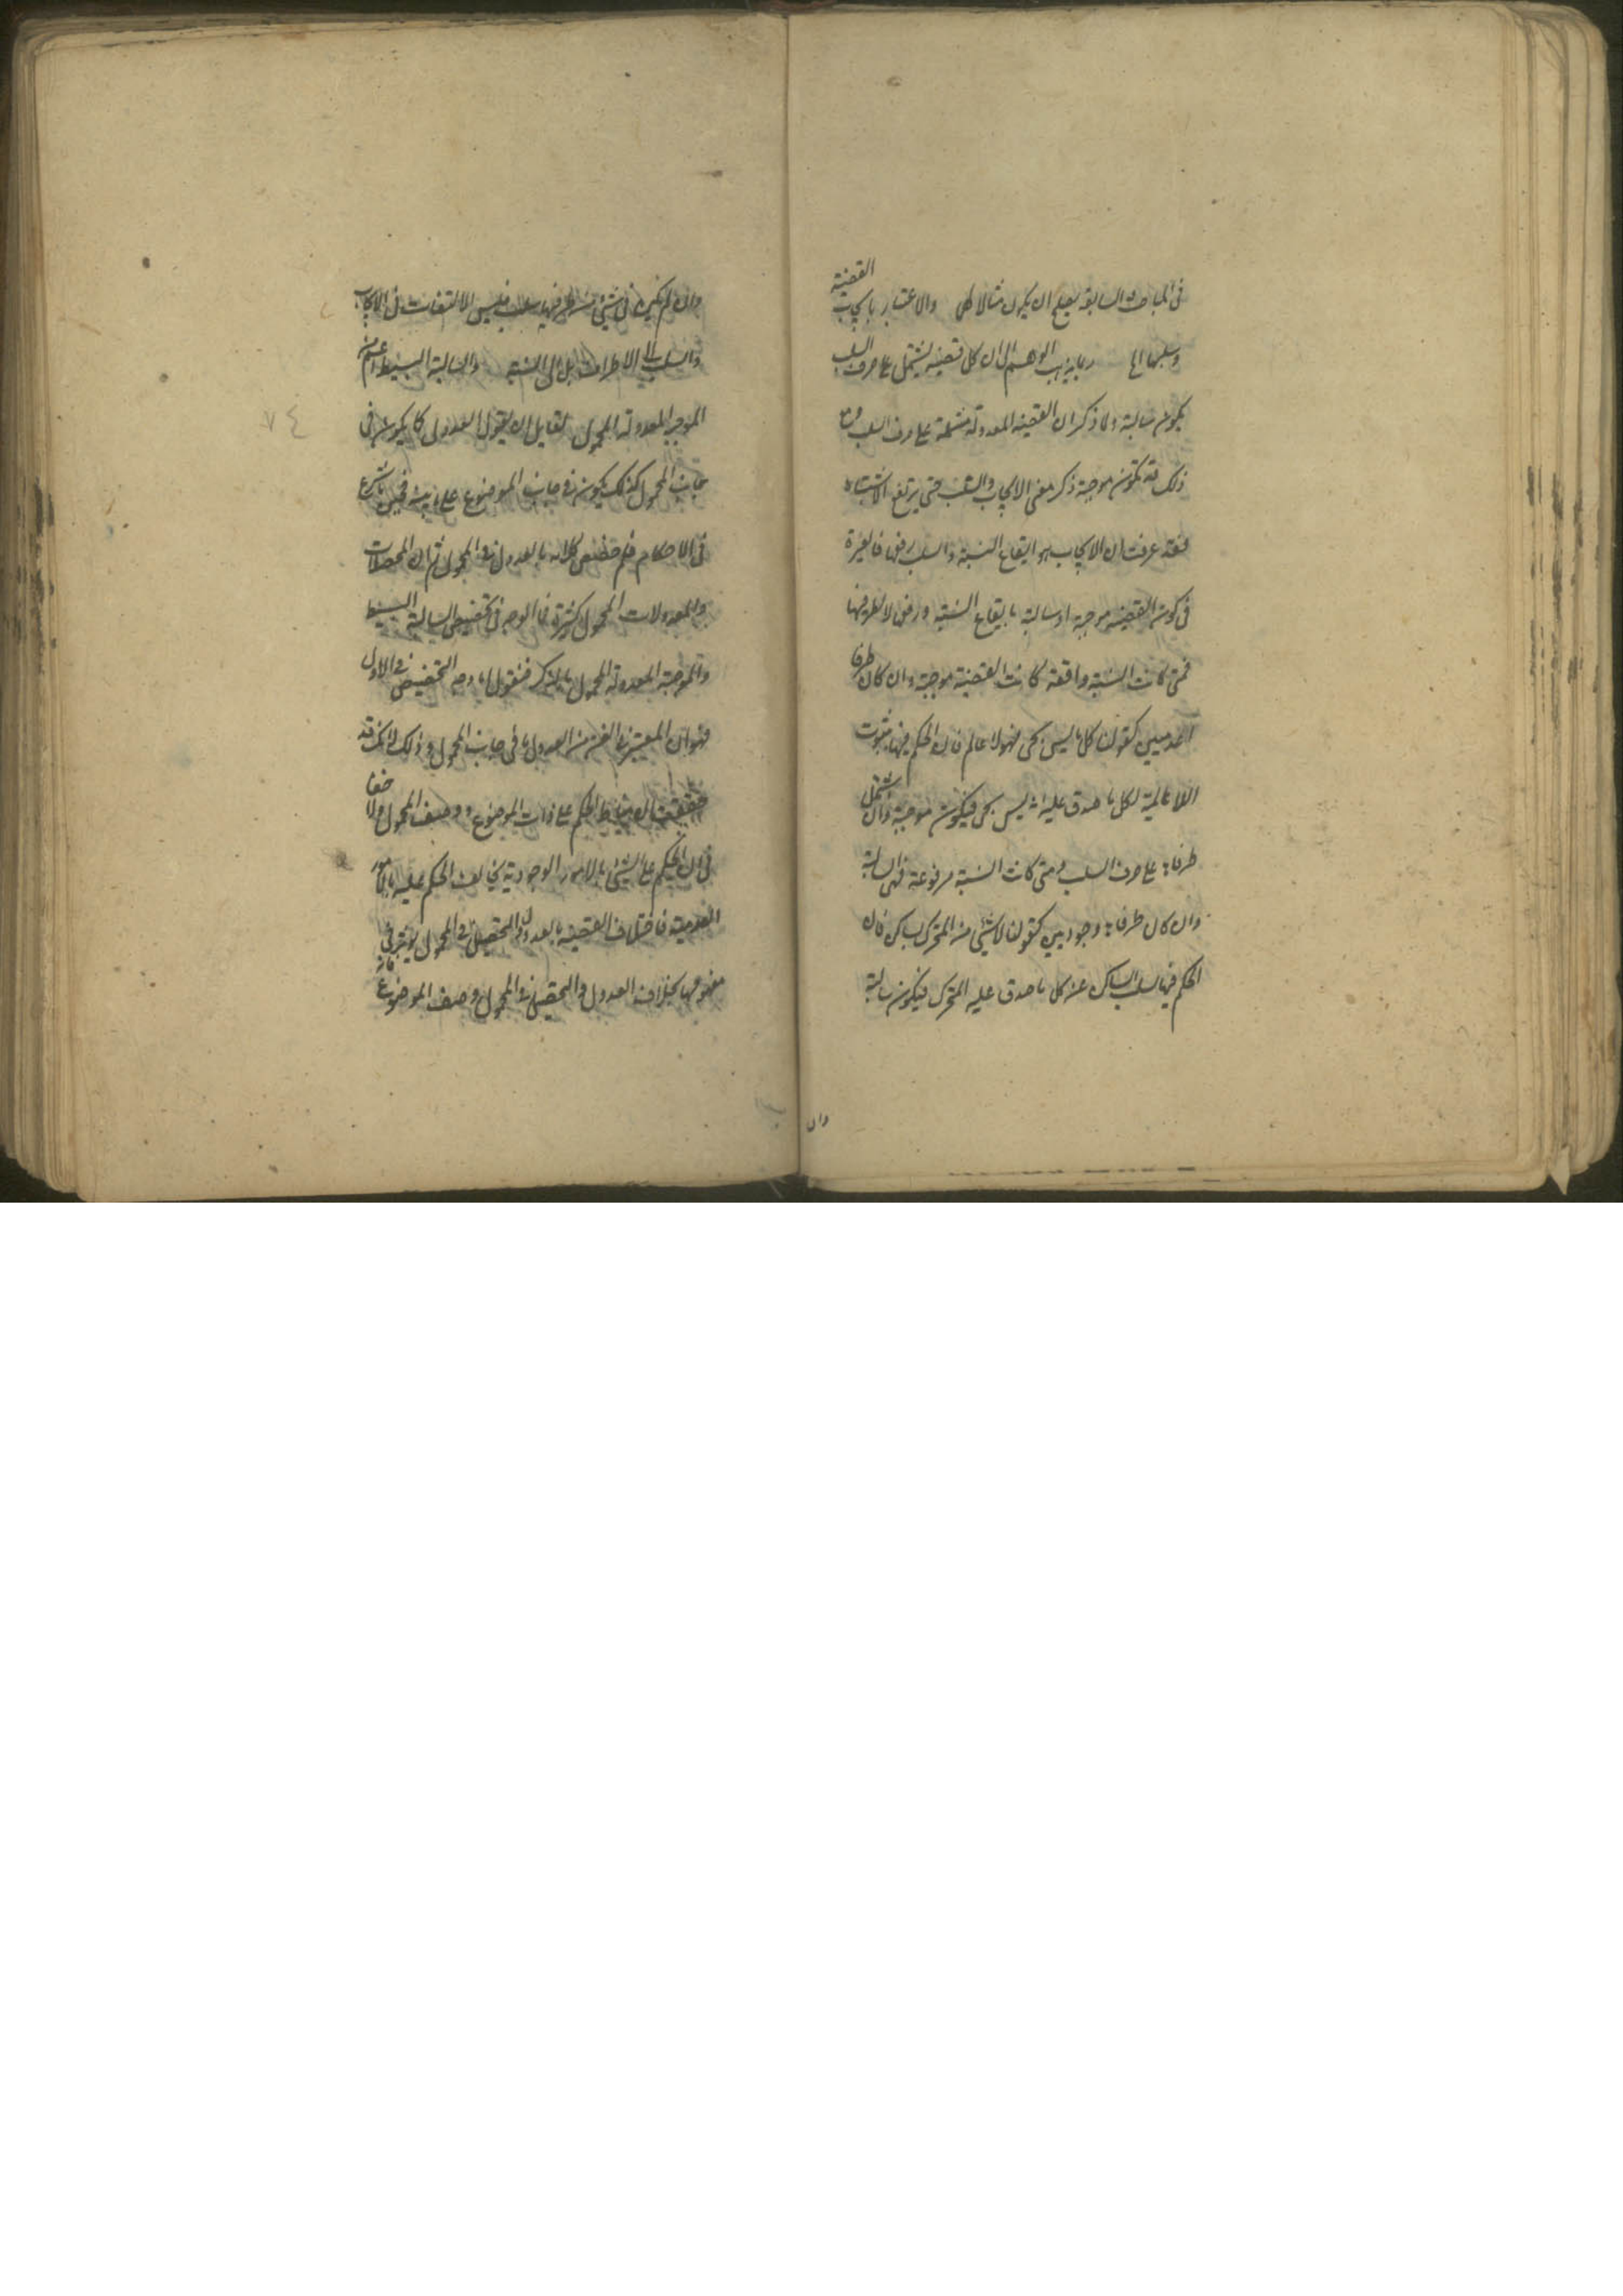 في المباحث السابقة يصلح ان يكون مثالا لها والاعتبار بايجاب القضية
وسلبها الخ ربما يذهب الوهم الى ان كل قضية يشتمل على حرف السلب
يكون سالبة ولما ذكر ان القضية المعدولة مشتملة على حرف السلب ومع
ذلك قد تكون موجبة ذكر معنى الايجاب والسلب حتى يرتفع الاشتباه
فقد عرفت ان الايجاب هو ايقاع النسبة والسلب رفعها فالعبرة
في كون القضية موجبة او سالبة بايقاع النسبة ورفعها لا بطرفيها
فمتى كانت النسبة واقعة كانت القضية موجبة وان كان طرفا
العدميين كقولنا كل ما ليس بحي فهو لا عالم فان الحكم فيها بثبوت
اللاعالمية لكل ما صدق عليه انه ليس بحي فيكون موجبة وان اشتمل
طرفاها على حرف السلب ومتى كانت النسبة مرفوعة فهي السالبة
وان كان طرفاها وجوديين كقولنا لا شيء من المتحرك بساكن فان
الحكم فيها بسلب الساكن عن كل ما صدق عليه المتحرك فيكون سالبة
وان
وان لم يكن في شيء من طرفيها سلب فليس الالتفات في الايجاب
والسلب الى الاطراف بل الى النسبة والسالبة البسيطة اعم من
الموجبة المعدولة المحمول لقايل ان يقول العدول كما يكون في
جانب المحمول كذلك يكون في جانب الموضوع على ما بينه فحين ما شرع
في الاحكام فلم خصص كلامه بالعدول في المحمول ثم ان المحصلات
والمعدولات المحمول كثيرة فما الوجه في تخصيص السالبة البسيطة
والموجبة المعدولة المحمول بالذكر فنقول اما وجه التخصيص في الاول
فهو ان المعتبر في الفن من العدول ما في جانب المحمول وذلك لانك قد
حققت ان مناط الحكم على ذات الموضوع ووصف المحمول ولا خفا
في ان الحكم على الشيء بالامور الوجودية يخالف الحكم عليه بالامور
العدمية فاختلاف القضية بالعدول والتحصيل في المحمول يوثر في
مفهومها بخلاف العدول والتحصيل في المحمول وصف الموضوع فانه
٧٤